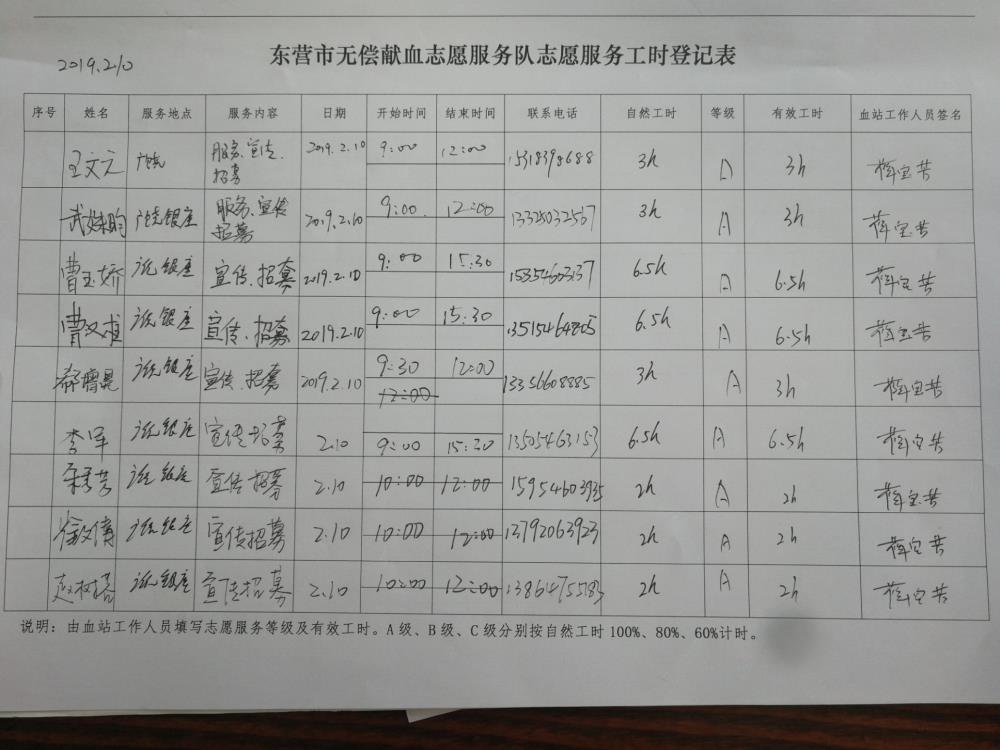 2019.2.10
东营市无偿献血志愿服务队志愿服务工时登记表
序号 姓名 服务地点 服务内容 日期 开始时间 结束时间 联系电话 自然工时 等级 有效工时 血站工作人员签名
王文元 广饶 服务、宣传、招募 2019.2.10 9:00 12:00 15318398688 3h A 3h
广饶银座 服务、宣传招募 2019.2.10 9:00 12:00 13325032567 3h A 3h
曹玉娇 银座 宣传、招募 2019.2.10 9:00 15:30 15854603137 6.5h A 6.5h
曹 银座 宣传、招募 2019.2.10 9:00 15:30 13515464805 6.5h A 6.5h
银座 宣传、招募 2019.2.10 9:30 12:00 13356608885 3h A 3h
12:00
李军 银座 宣传招募 2.10 9:00 15:30 13505463153 6.5h A 6.5h
银座 宣传招募 2.10 10:00 12:00 15954603935 2h A 2h
银座 宣传招募 2.10 10:00 12:00 13792063923 2h A 2h
银座 宣传招募 2.10 10:00 12:00 13864755183 2h A 2h
说明：由血站工作人员填写志愿服务等级及有效工时。A级、B级、C级分别按自然工时100%、80%、60%计时。